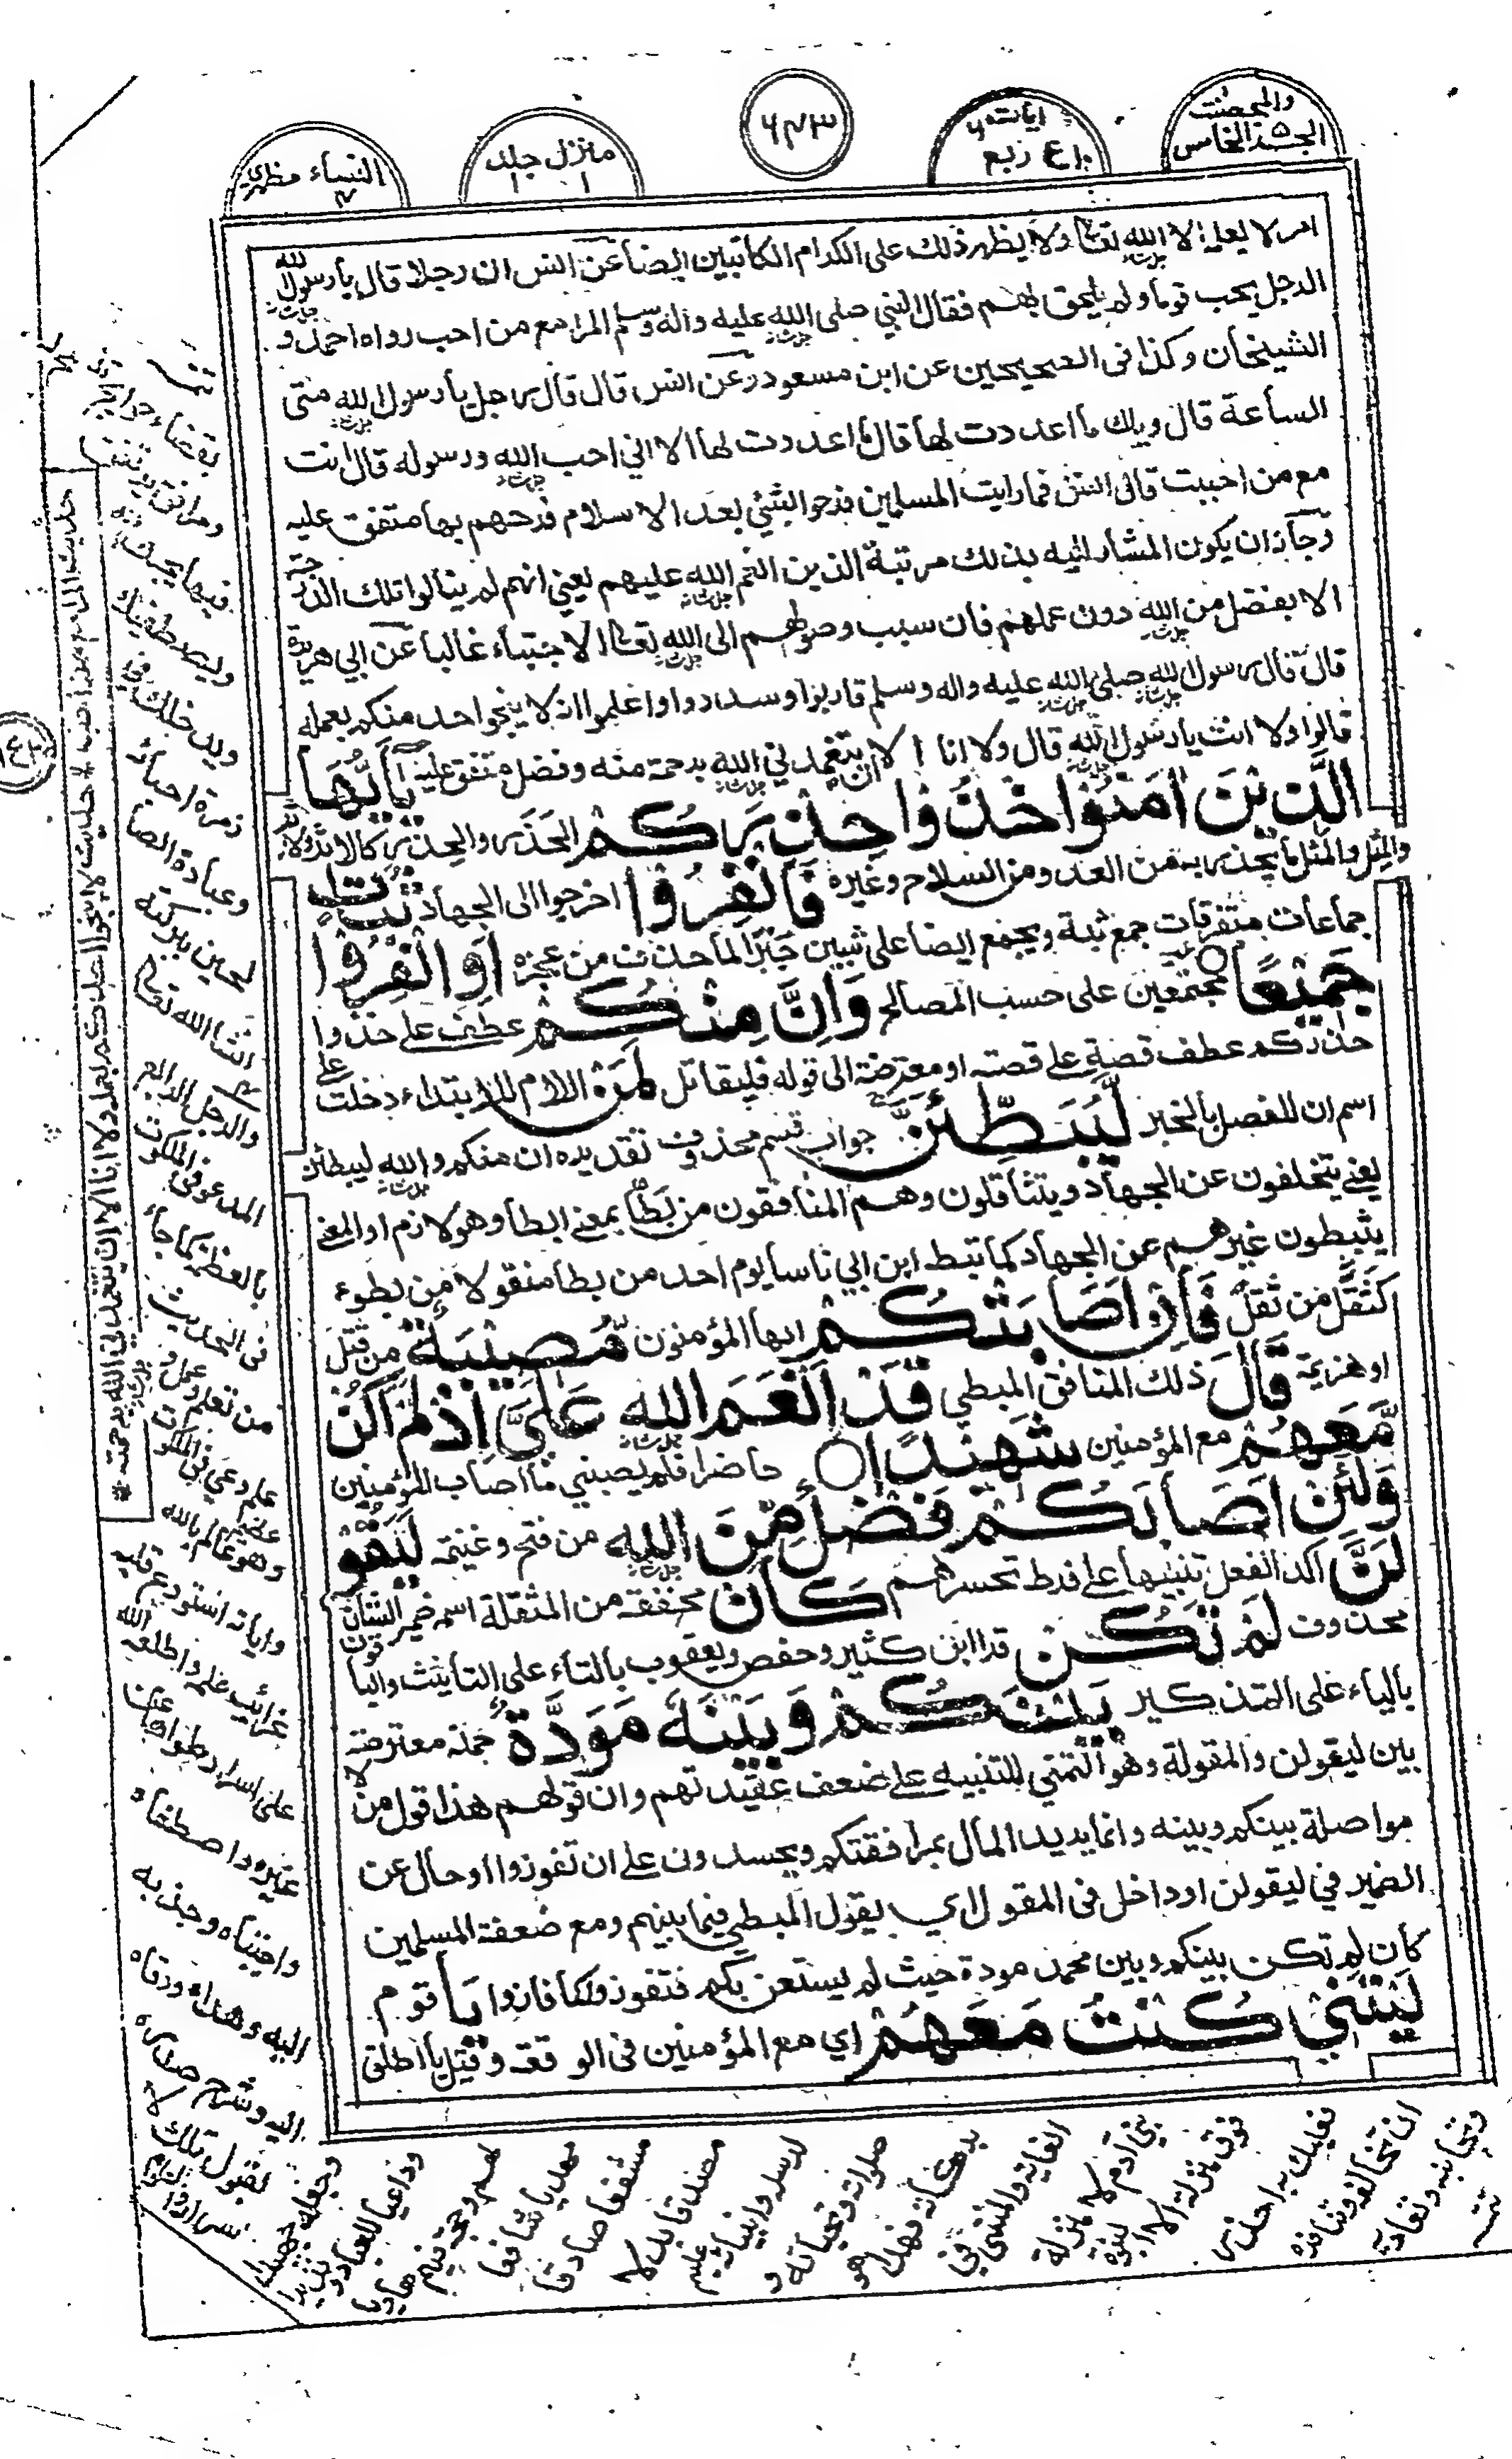 والمحصنت
الجزء الخامس
ربع
٦٤٣
منزل جلد
١ ١
النساء مظهري
٤
امر لا يعلمه الا الله تعالى ولا يظهر ذلك على الكرام الكاتبين ايضا عن انس ان رجلا قال يا رسول الله
الرجل يحب قوما ولم يلحق بهم فقال النبي صلى الله عليه واله وسلم المرا مع من احب رواه احمد و
الشيخان وكذا فى الصحيحين عن ابن مسعود وعن انس قال قال رجل يا رسول الله متى
الساعة قال ويلك ما اعددت لها قال ما اعددت لها الا اني احب الله ورسوله قال انت
مع من احببت قال انس فما رايت المسلمين فرحوا بشئ بعد الاسلام فرحهم بها متفق عليه
وجاز ان يكون المشار اليه بذلك مرتبة الذين انعم الله عليهم يعني انهم لم ينالوا تلك الدرجة
الا بفضل من الله دون عملهم فان سبب وصولهم الى الله تعالى الاجتباء غالبا عن ابي هريرة
قال قال رسول الله صلى الله عليه واله وسلم قاربوا وسددوا واعلموا انه لا ينجوا احد منكم بعمله
قالوا ولا انت يا رسول الله قال ولا انا الا ان يتغمدني الله برحمة منه وفضل متفق عليه يٰاَيُّهَا
الَّذِيْنَ اٰمَنُوْا خُذُوْا حِذْرَكُمْ الحَذَر والحِذْر كالاثر والاثر
والمِثل والمَثل ما يحذر به من العدو من السلاح وغيره فَانْفِرُوْا اخرجوا الى الجهاد ثُبَاتٍ
جماعات متفرقات جمع ثبة ويجمع ايضا على ثبين جَبْرًا لما حذف من عجزه اَوِ انْفِرُوْا
جَمِيْعًا مجتمعين على حسب المصالح وَاِنَّ مِنْكُمْ عطف على خذوا
حذركم عطف قصة على قصته او معترضة الى قوله فليقاتل لَمَنْ اللام للابتداء دخلت على
اسم ان للفصل بالخبر لَّيُبَطِّئَنَّ جواب قسم محذوف تقديره ان منكم والله ليبطئن
يعني يتخلفون عن الجهاد ويتثاقلون وهم المنافقون من بَطَّأ بمعنى ابطأ وهو لازم او المعنى
يثبطون غيرهم عن الجهاد كما ثبط ابن ابي ناسا يوم احد من بطا منقولا من بطوء
كثَقَّل من ثقل فَاِنْ اَصَابَتْكُمْ ايها المؤمنون مُّصِيْبَةٌ من قتل
او هزيمة قَالَ ذلك المنافق المبطي قَدْ اَنْعَمَ اللّٰهُ عَلَيَّ اِذْ لَمْ اَكُنْ
مَّعَهُمْ مع المؤمنين شَهِيْدًا حاضرا فلم يصبني ما اصاب المؤمنين
وَلَئِنْ اَصَابَكُمْ فَضْلٌ مِّنَ اللّٰهِ من فتح وغنيمة لَيَقُوْ
لَنَّ اكد الفعل تنبيها على فرط تحسرهم كَاَنْ مخففة من المثقلة اسمه ضمير الشان
محذوف لَمْ تَكُنْ قرا ابن كثير وحفص ويعقوب بالتاء على التانيث والباقون
بالياء على التذكير بَيْنَكُمْ وَبَيْنَهٗ مَوَدَّةٌ جملة معترضة
بين ليقولن والمقولة وهو التمني للتنبيه على ضعف عقيدتهم وان قولهم هذا قول من لا
مواصلة بينكم وبينه وانما يريد المال بمرافقتكم ويحسدون على ان تفوزوا او حال عن
الضمير في ليقولن او داخل فى المقول اي يقول المبطي فيما بينهم ومع ضعفة المسلمين
كان لم تكن بينكم وبين محمد مودة حيث لم يستعن بكم فتفوزوا كما فازوا يا قوم
لَيْتَنِيْ كُنْتُ مَعَهُمْ اي مع المؤمنين فى الوقعة وقيل يا اطلق
حديث المرء مع من احب * حديث لا ينجوا احد منكم بعمله ولا انا الا ان يتغمدني الله برحمته *
زمرة احبائه
وعبادة الصا
لحين ببركته
انشاالله تعالى
والرجل الرابع
المدعو فى الملكوت
بالعظيم كما جاء
فى الحديث
من تعلم وعمل و
علم دعي فى الملكوت
عظيم
وهو عالم بالله
واياته استودع قلبه
غرائب علمه واطلعه الله
على اسرار
غيره واصطفاه
واجتباه وجذبه
اليه وهداه ورقاه
اليه وشرح صدره
لقبول تلك